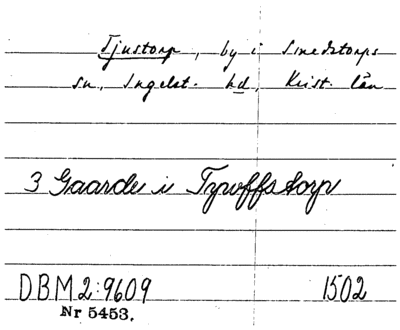 Tjustorp, by i Smedstorps
sn., Ingelst. hd, Krist. län
3 Gaarde i Tywffstorp
DBM 2:9609 1502
Nr 5453.